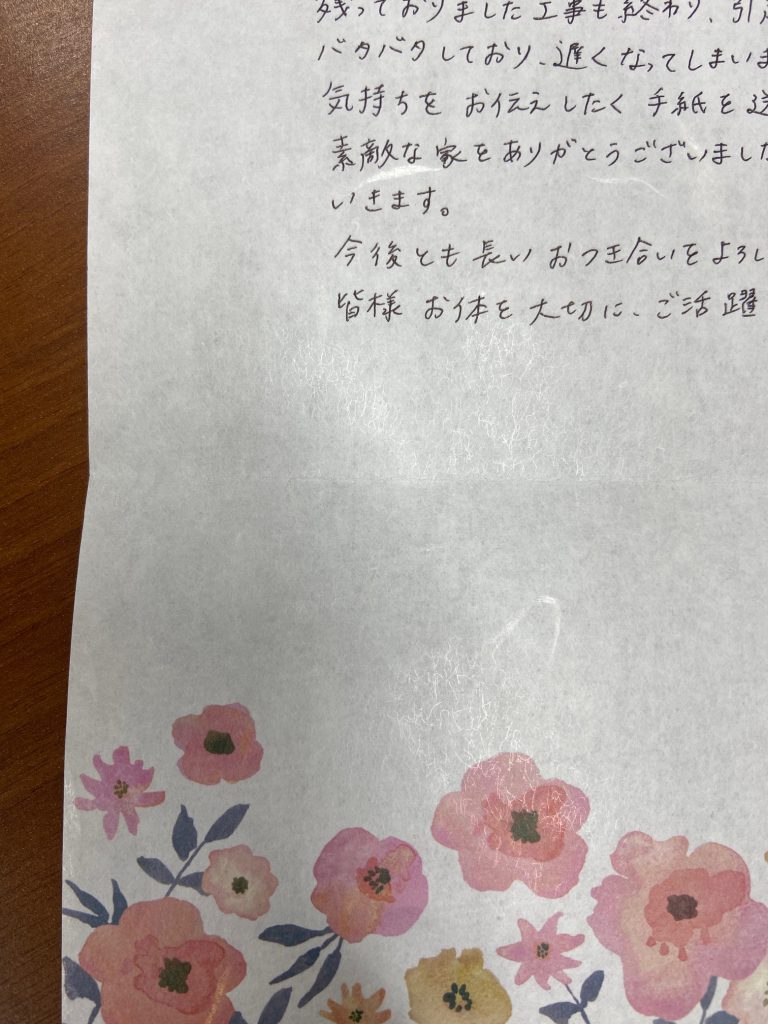 残っておりました工事も終わり、引
バタバタしており、遅くなってしまいま
気持ちを お伝えしたく 手紙を送
素敵な家をありがとうございました
いきます。
今後とも長い おつき合いをよろし
皆様 お体を大切に、ご活躍